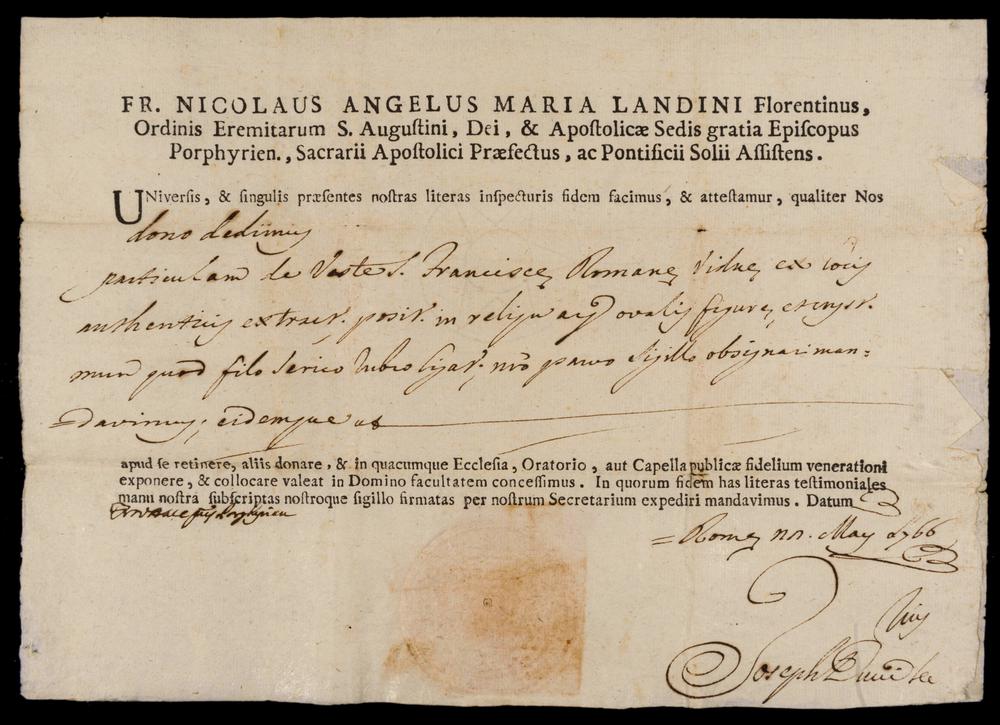 FR. NICOLAUS ANGELUS MARIA LANDINI Florentinus,
Ordinis Eremitarum S. Auguſtini, Dei, & Apoſtolicæ Sedis gratia Epiſcopus
Porphyrien., Sacrarii Apoſtolici Præfectus, ac Pontificii Solii Aſſiſtens.
UNiverſis, & ſingulis præſentes noſtras literas inſpecturis fidem facimus, & atteſtamur, qualiter Nos
dono dedimus
particulam de Veste S. Francisce Romane Vidue ex locis
authenticis extract. posit. in reliquiario ovalis figure,
quod filo serico rubro ligat. nrō parvo sigillo obsignari man=
=davimus; eidemque ut
apud ſe retinere, aliis donare, & in quacumque Eccleſia, Oratorio, aut Capella publicæ fidelium venerationi
exponere, & collocare valeat in Domino facultatem conceſſimus. In quorum fidem has literas teſtimoniales
manu noſtra ſubſcriptas noſtroque ſigillo firmatas per noſtrum Secretarium expediri mandavimus. Datum
=Rome May 1766
Joseph